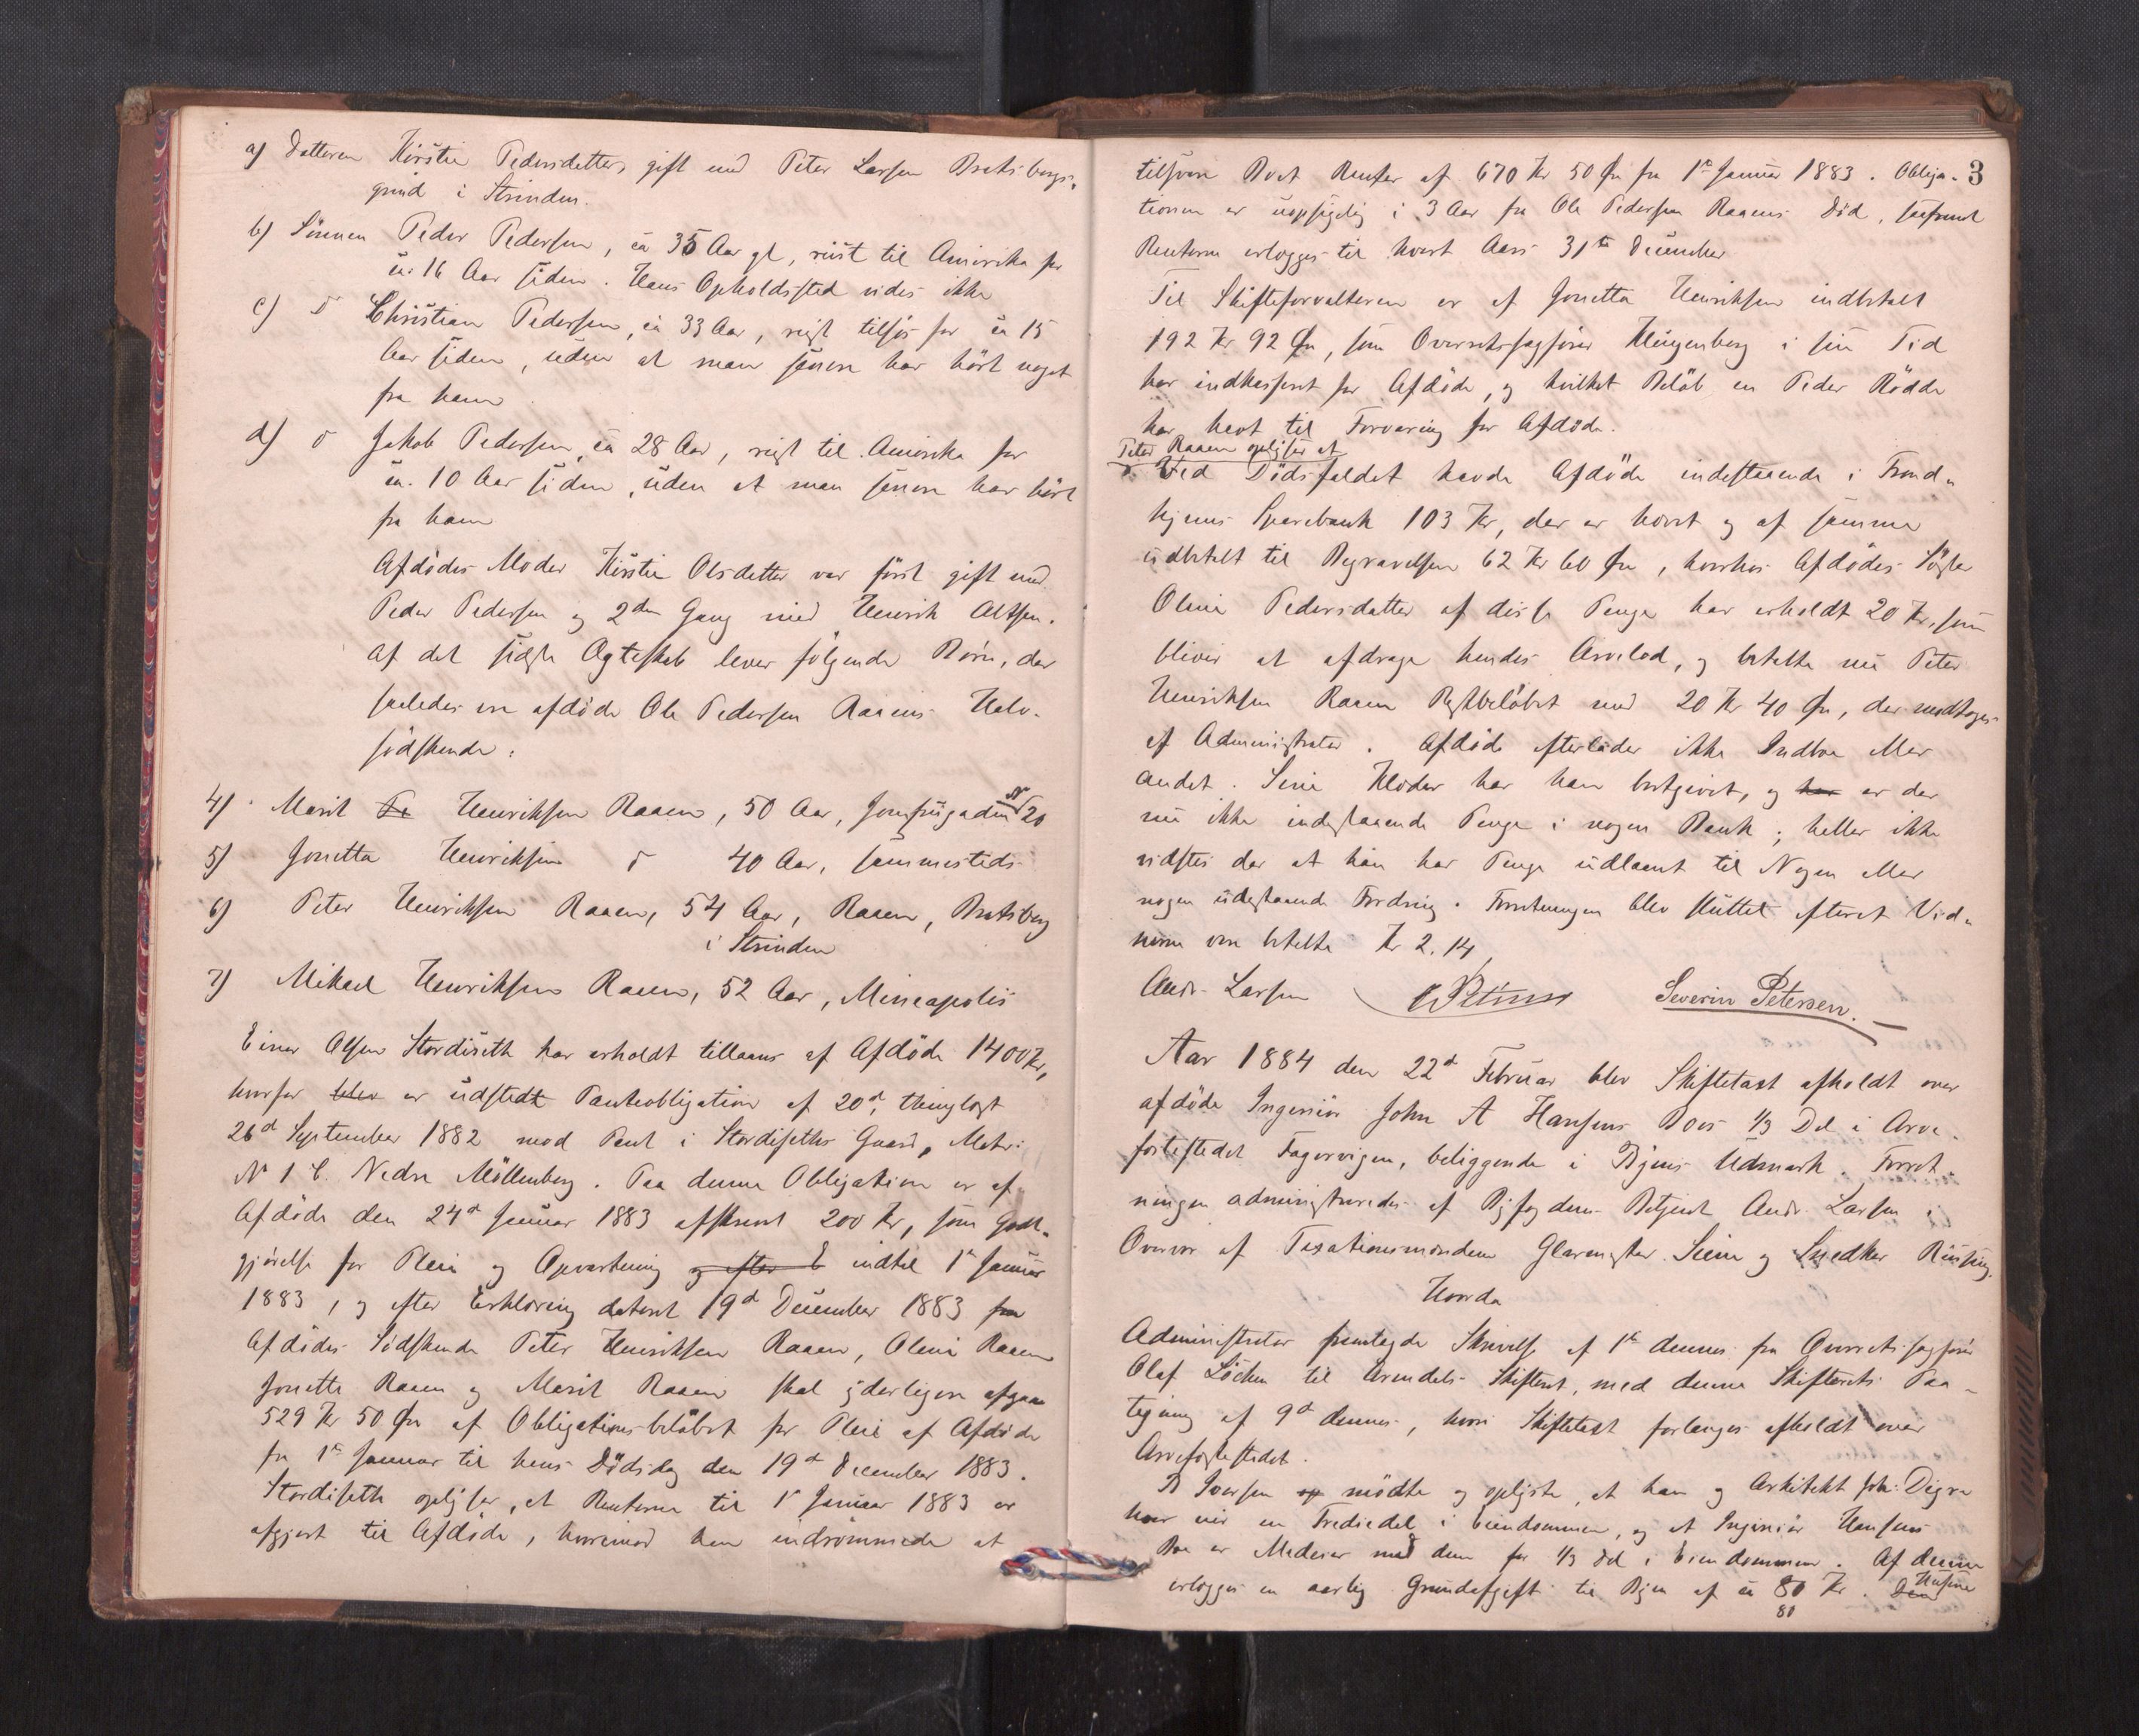 a) Datteren Kirstie Pedersdatter, gift med Peter Larsen Bratsbergs-
grind i Strinden.
b) Sönnen Peder Pedersen, ca 35 Aar gl, reist til Amerika for
ca. 16 Aar siden. Hans Opholdssted vides ikke
c) D Christian Pedersen, ca 33 Aar, reist tilsjös for ca 15
Aar siden, uden at man senere har hört noget
fra ham.
d) D Jakob Pedersen, ca 28 Aar, reist til Amerika for
ca. 10 Aar siden, uden at man senere har hört
fra ham
Afdödes Moder Kirstie Olsdatter var först gift med
Peder Pedersen og 2den Gang med Henrik Altsen.
Af det sidste Ægteskab lever fölgende Börn, der
saaledes ere afdöde Ole Pedersen Raaens Halv-
södskende:
4) Marit Pe Henriksen Raaen, 50 Aar, Jomfrugaden N 20
5) Jonetta Henriksen D 40 Aar, sammesteds
6) Peter Henriksen Raaen, 54 Aar, Raaen, Bratsberg
i Strinden
7) Mikael Henriksen Raaen, 52 Aar, Mineapolis
Einar Olsen Stordiseth har erholdt tillaans af Afdöde 1400 Kr,
hvorfor blev er udstedt Panteobligation af 20d, thinglæst
26d September 1882 mod Pant i Stordiseths Gaard, Matr:
N 1 C. Nedre Möllenberg. Paa denne Obligation er af
Afdöde den 24d Januar 1883 afskrevet 200 Kr, som Godt-
gjörelse for Pleie og Opvartning og efter E indtil 1ste Januar
1883, og efter Erklæring dateret 19d December 1883 fra
Afdödes Södskende Peter Henriksen Raaen, Oline Raaen
Jonette Raaen og Marit Raaen skal yderligere afgaa
529 Kr 50 Øre af Obligationsbelöbet for Pleie af Afdöde
fra 1ste Januar til hans Dödsdag den 19d December 1883.
Stordiseth oplyser, at Renterne til 1ste Januar 1883 er
afgjort til Afdöde, hvorimod han indrömmede at
3
tilsvare Boet Renter af 670 Kr 50 Øre fra 1ste Januar 1883. Obliga-
tionen er uopsigelig i 3 Aar fra Ole Pedersen Raaens Död, saafremt
Renterne erlægges til hvert Aars 31te December
Til Skifteforvalteren er af Jonetta Henriksen indbetalt
192 Kr 92 Øre, som Overretssagförer Klingenberg i sin Tid
har indkasseret for Afdöde, og hvilket Belöb en Peder Rödde
har havt til Forvaring for Afdöde.
Peter Raaen oplyser at
Ved Dödsfaldet havde Afdöde indestaaende i Trond-
hjems Sparebank 103 Kr, der er hævet og af samme
udbetalt til Begravelsen 62 Kr 60 Øre, hvorhos Afdödes Söster
Oline Pedersdatter af disse Penge har erholdt 20 Kr, som
bliver at afdrage hendes Arvelod, og betalte nu Peter
Henriksen Raaen Restbelöbet med 20 Kr 40 Øre, der modtoges
af Administrator. Afdöde efterlader ikke Indboe eller
andet. Sine Klæder har han bortgivet, og har er der
nu ikke indestaaende Penge i nogen Bank; heller ikke
vidstes der at han har Penge udlaant til Nogen eller
nogen udestaaende Fordring. Forretningen blev sluttet efterat Vid-
nerne vare betalte Kr 2.14
Andr. Larsen Severin Petersen.
Aar 1884 den 22d Februar blev Skiftetaxt afholdt over
afdöde Ingeniör John A Hansens Boes 1/3 Del i Arve-
festestedet Fagervigen, beliggende i Byens Udmark. Forret-
ningen administreredes af Byfogdens Betjent Andr. Larsen i
Overvær af Taxationsmændene Glarmester Seim og Snedker Riising.
Hvorda
Administrator fremlagde Skrivelse af 1ste dennes fra Overretssagförer
Olaf Löchen til Arendals Skifteret, med denne Skifterets Paa-
tegning af 9d dennes, hvori Skiftetaxt forlanges afholdt over
Arvefestestedet.
B Iversen op mödte og oplyste, at han og Arkitekt Joh: Digre
hver eier en Trediedel i Eiendommen, og at Ingeniör Hansens
Bo er Medeier med dem for 1/3 Del i Eiendommen. Af denne
erlægges en aarlig Grundafgift til Byen af ca 80 Kr. Den Husene
80